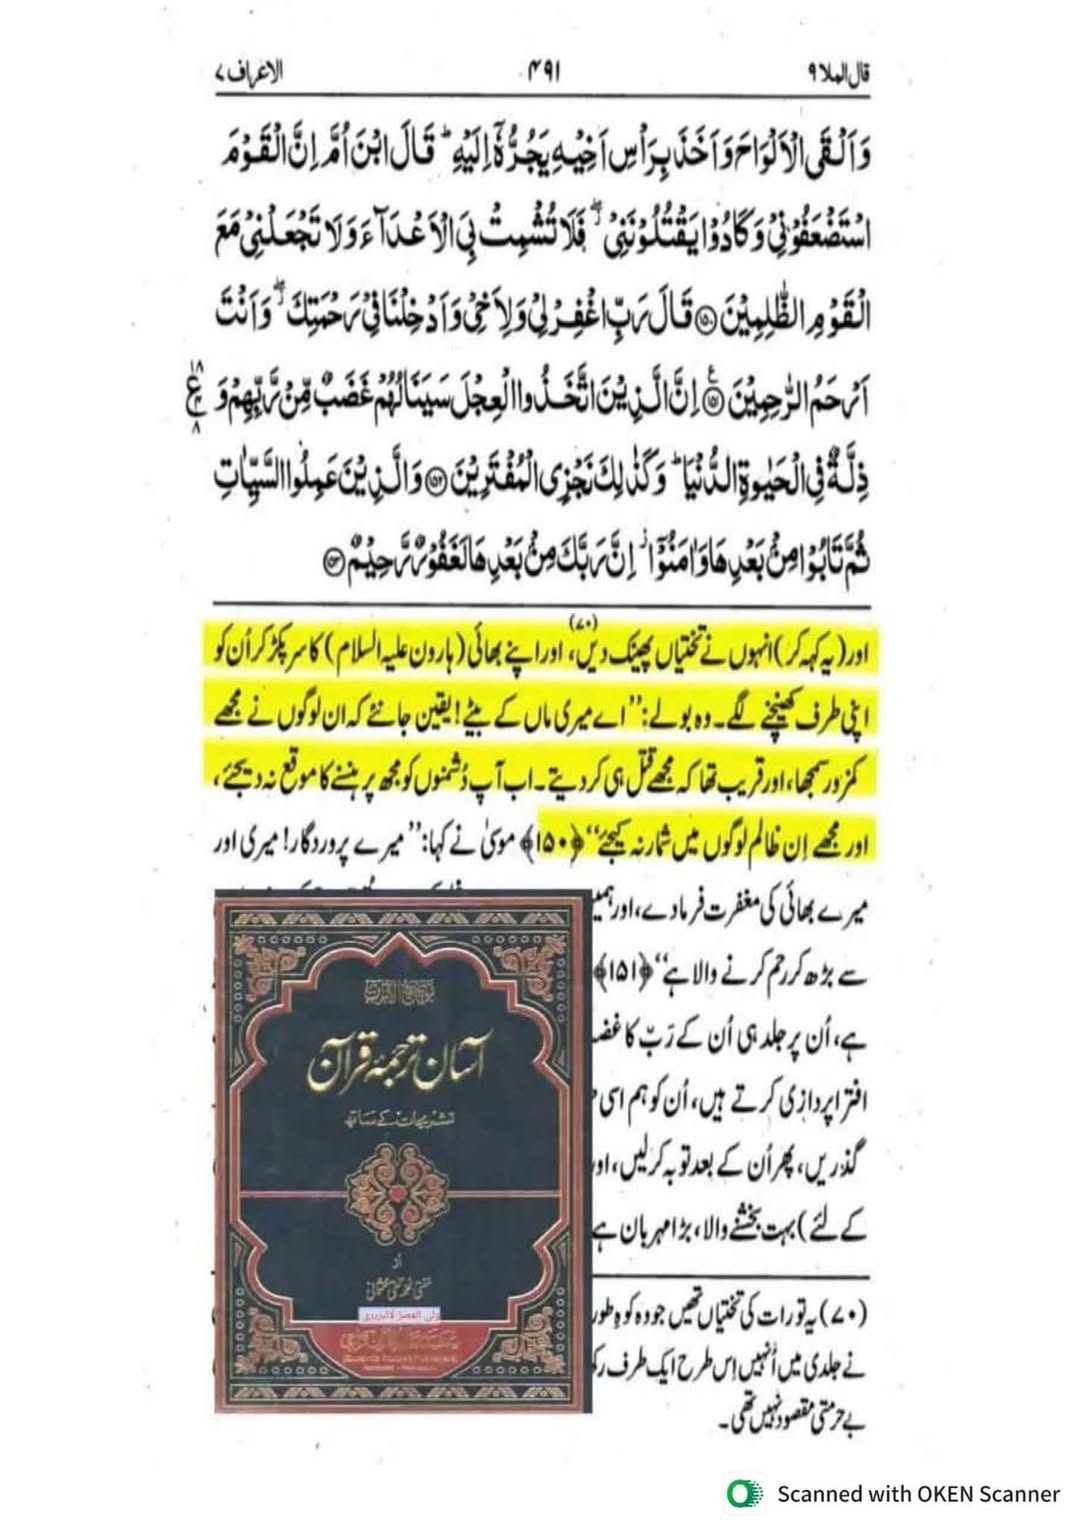 قال الملا ۹
۴۹۱
الاعراف ۷
وَاَلْقَى الْاَلْوَاحَ وَاَخَذَ بِرَاْسِ اَخِيْهِ يَجُرُّهٗۤ اِلَيْهِ ؕ قَالَ ابْنَ اُمَّ اِنَّ الْقَوْمَ
اسْتَضْعَفُوْنِيْ وَكَادُوْا يَقْتُلُوْنَنِيْ ۖ فَلَا تُشْمِتْ بِيَ الْاَعْدَآءَ وَلَا تَجْعَلْنِيْ مَعَ
الْقَوْمِ الظّٰلِمِيْنَ ﴿۱۵۰﴾ قَالَ رَبِّ اغْفِرْ لِيْ وَلِاَخِيْ وَاَدْخِلْنَا فِيْ رَحْمَتِكَ ۖ وَاَنْتَ
اَرْحَمُ الرّٰحِمِيْنَ ﴿۱۵۱﴾ ع اِنَّ الَّذِيْنَ اتَّخَذُوا الْعِجْلَ سَيَنَالُهُمْ غَضَبٌ مِّنْ رَّبِّهِمْ وَ
۱۸ ع ۸
ذِلَّةٌ فِي الْحَيٰوةِ الدُّنْيَا ؕ وَكَذٰلِكَ نَجْزِي الْمُفْتَرِيْنَ ﴿۱۵۲﴾ وَالَّذِيْنَ عَمِلُوا السَّيِّاٰتِ
ثُمَّ تَابُوْا مِنْۢ بَعْدِهَا وَاٰمَنُوْۤا ۫ اِنَّ رَبَّكَ مِنْۢ بَعْدِهَا لَغَفُوْرٌ رَّحِيْمٌ ﴿۱۵۳﴾
اور (یہ کہہ کر) انہوں نے تختیاں پھینک دیں، (۷۰) اور اپنے بھائی (ہارون علیہ السلام) کا سر پکڑ کر اُن کو
اپنی طرف کھینچنے لگے۔ وہ بولے: ’’اے میری ماں کے بیٹے! یقین جانئے کہ ان لوگوں نے مجھے
کمزور سمجھا، اور قریب تھا کہ مجھے قتل ہی کر دیتے۔ اب آپ دُشمنوں کو مجھ پر ہنسنے کا موقع نہ دیجئے،
اور مجھے اِن ظالم لوگوں میں شمار نہ کیجئے‘‘ ﴿۱۵۰﴾ موسیٰ نے کہا: ’’میرے پروردگار! میری اور
میرے بھائی کی مغفرت فرما دے، اور ہمیں
سے بڑھ کر رحم کرنے والا ہے‘‘ ﴿۱۵۱﴾
ہے، اُن پر جلد ہی اُن کے رَبّ کا غضب
افترا پردازی کرتے ہیں، اُن کو ہم اسی
گذریں، پھر اُن کے بعد توبہ کرلیں، اور
کے لئے) بہت بخشنے والا، بڑا مہربان ہے
(۷۰) یہ تورات کی تختیاں تھیں جو وہ کوہِ طور
نے جلدی میں اُنہیں اِس طرح ایک طرف رکھ
بے حرمتی مقصود نہیں تھی۔
توضیح القرآن
آسان ترجمۂ قرآن
تشریحات کے ساتھ
از
مفتی محمد تقی عثمانی
ولي العصر لائبریری
Scanned with OKEN Scanner